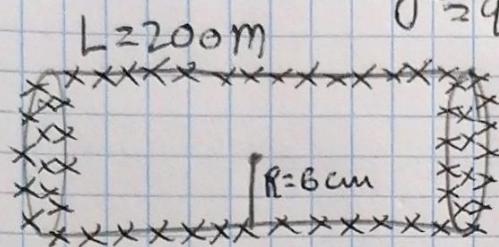 L=200m
R=6cm